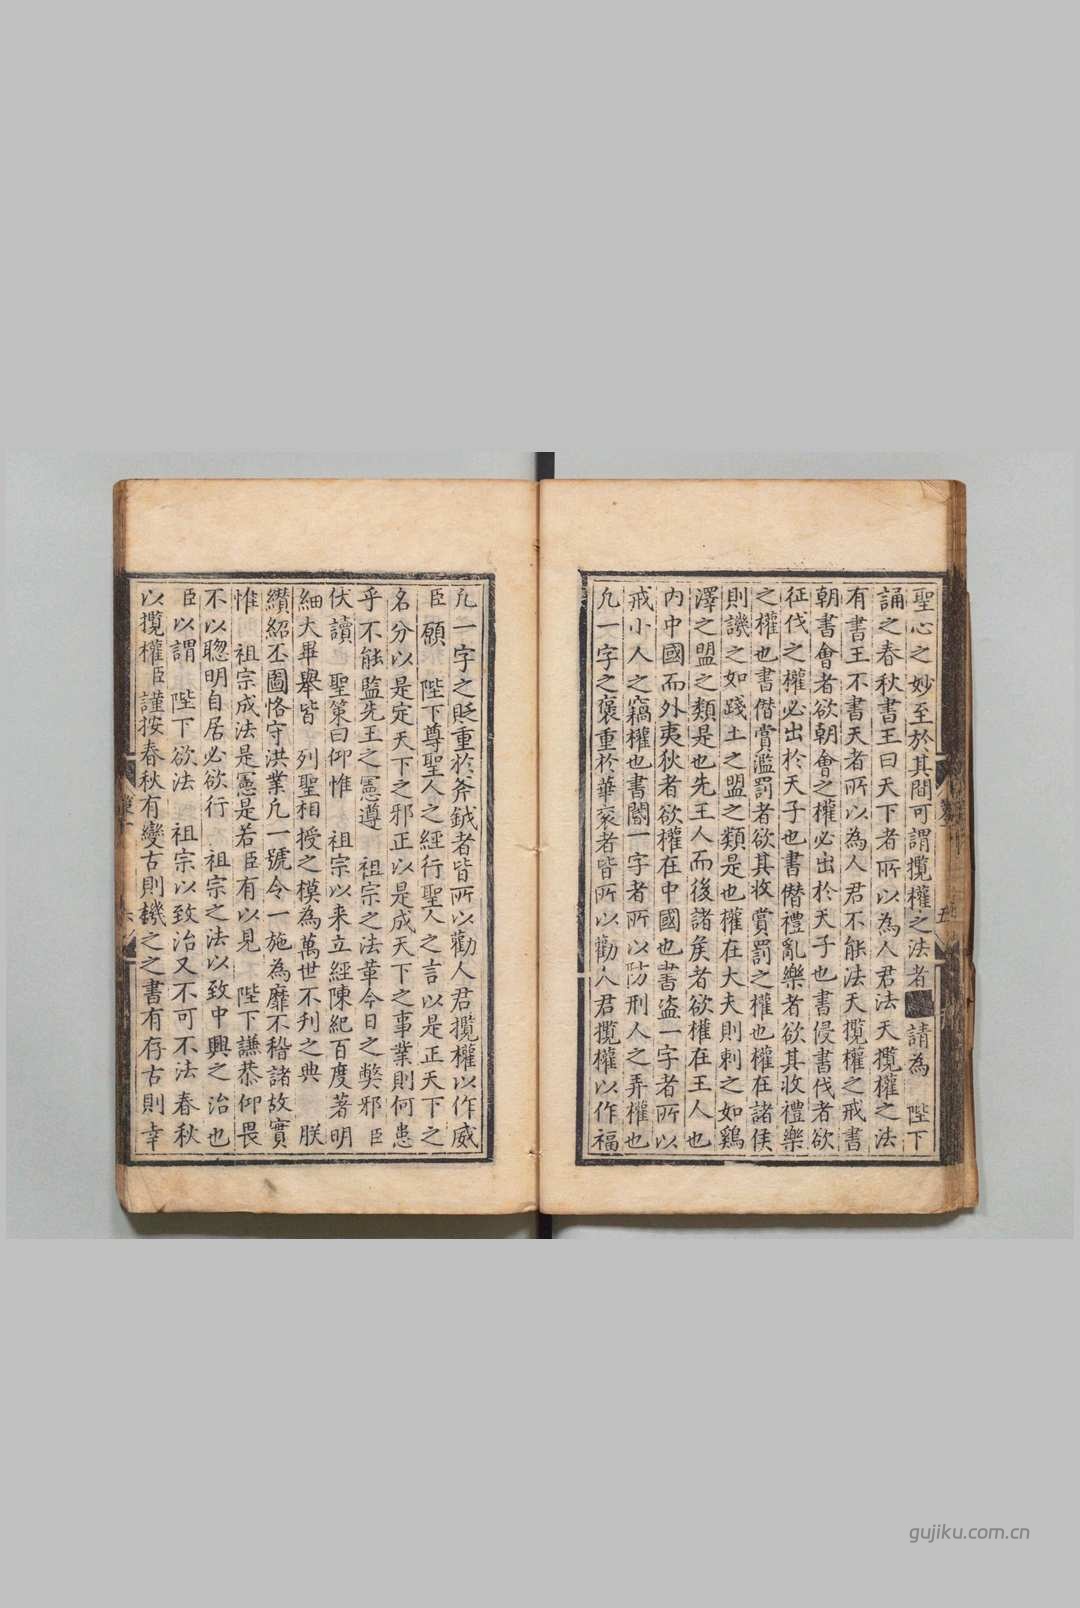 聖心之妙至於其間可謂攬權之法者 請為 陛下
誦之春秋書王曰天下者所以為人君法天攬權之法
有書王不書天者所以為人君不能法天攬權之戒書
朝書會者欲朝會之權必出於天子也書侵書伐者欲
征伐之權必出於天子也書僭禮亂樂者欲其收禮樂
之權也書僭賞濫罰者欲其收賞罰之權也權在諸侯
則譏之如踐土之盟之類是也權在大夫則刺之如鷄
澤之盟之類是也先王人而後諸矦者欲權在王人也
內中國而外夷狄者欲權在中國也書盜一字者所以
戒小人之竊權也書閽一字者所以防刑人之弄權也
凢一字之褒重於華衮者皆所以勸人君攬權以作福
凢一字之貶重於斧鉞者皆所以勸人君攬權以作威
臣願 陛下尊聖人之經行聖人之言以是正天下之
名分以是定天下之邪正以是成天下之事業則何患
乎不能監先王之憲遵 祖宗之法革今日之弊邪臣
伏讀 聖策曰仰惟 祖宗以来立經陳紀百度著明
細大畢舉皆 列聖相授之模為萬世不刋之典 朕
纘紹丕圖恪守洪業凢一號令一施為靡不稽諸故實
惟 祖宗成法是憲是若臣有以見 陛下謙恭仰畏
不以聰明自居必欲行 祖宗之法以致中興之治也
臣以謂 陛下欲法 祖宗以致治又不可不法春秋
以攬權臣謹按春秋有變古則譏之之書有存古則幸
五
六
gujiku.com.cn